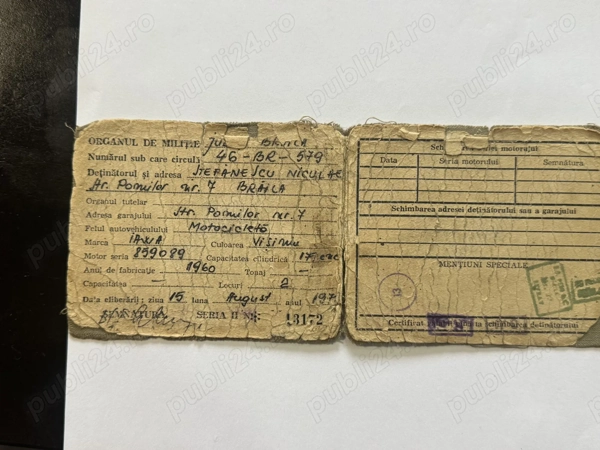 ORGANUL DE MILIȚIE JUD. BRAILA
Numărul sub care circulă 46-BR-579
Deținătorul și adresa STEFANESCU NICULAE
Str. Pomilor nr. 7 BRAILA
Organul tutelar
Adresa garajului Str. Pomilor nr. 7
Felul autovehicului Motocicletă
Marca IAWA Culoarea Vișiniu
Motor seria 859089 Capacitatea cilindrică 175 cmc
Anul de fabricație 1960 Tonaj —
Capacitatea — Locuri 2
Data eliberării: ziua 15 luna August anul 197
SEMNĂTURA SERIA H Nr. 13172
motorului
Data Seria motorului Semnătura
Schimbarea adresei deținătorului sau a garajului
MENȚIUNI SPECIALE
Certificat la schimbarea deținătorului
publi24.ro